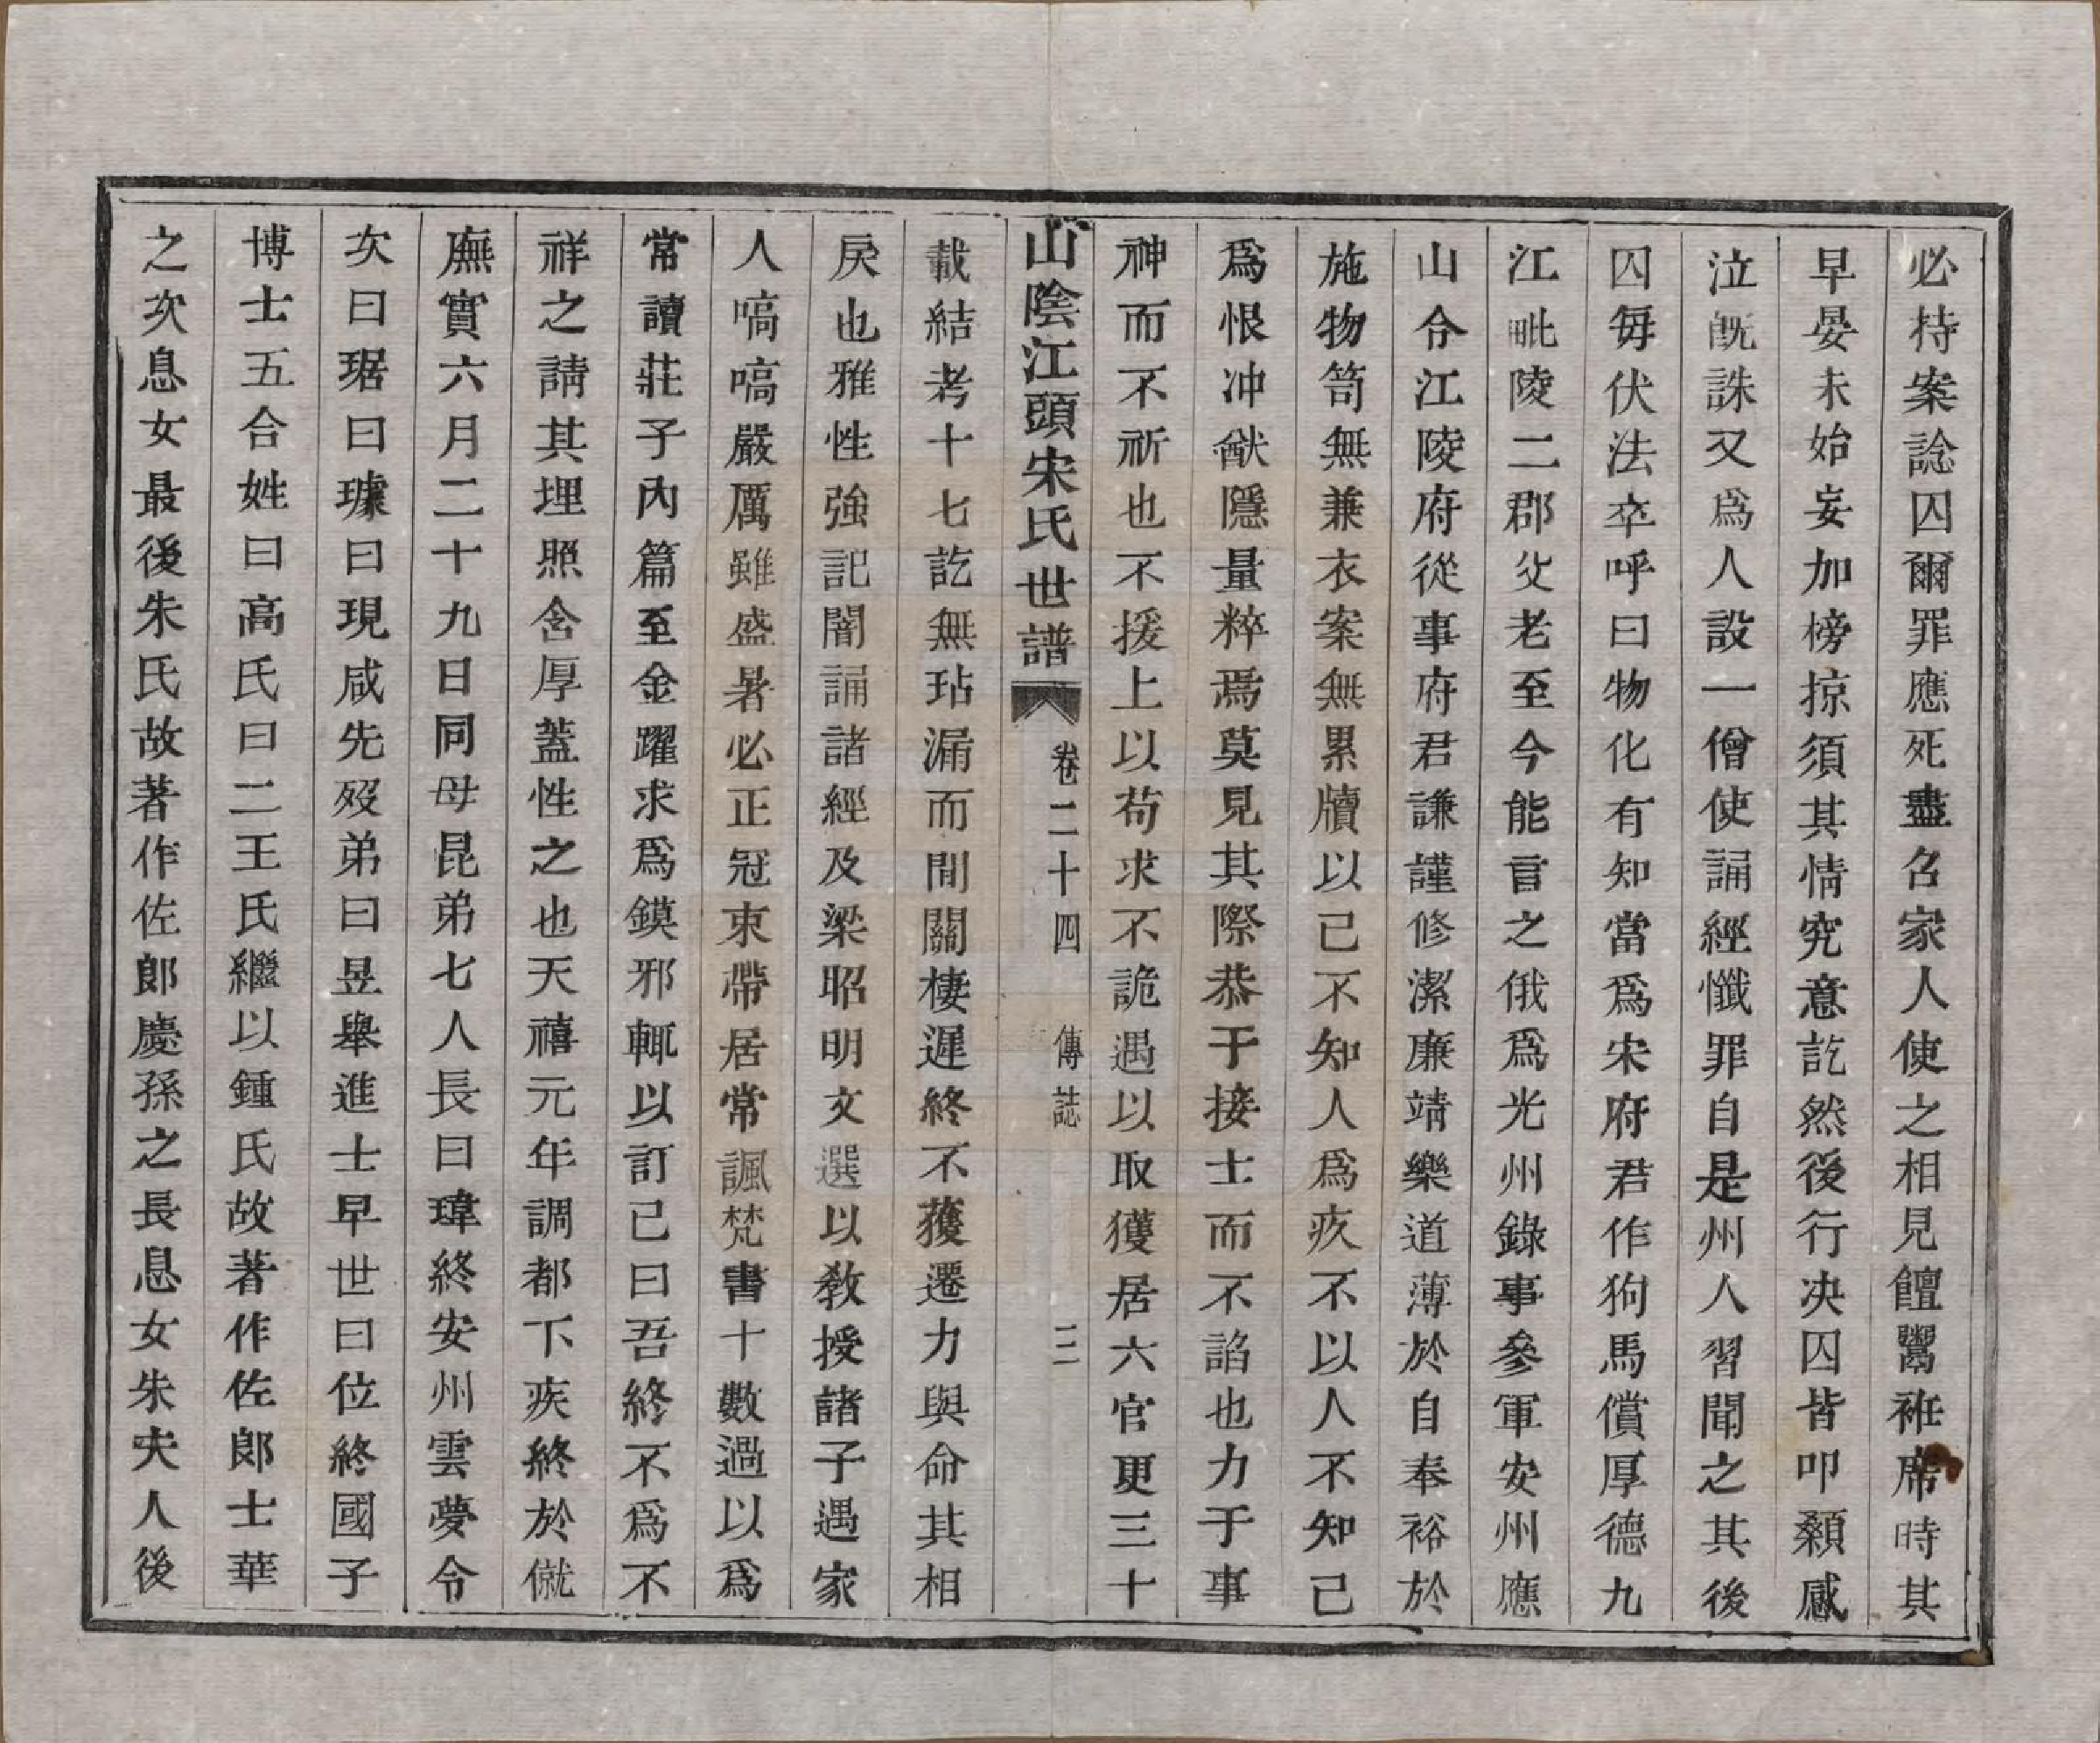 必持案諗囚爾罪應死盡名家人使之相見饘鬻袵席時其
早晏未始妄加榜掠須其情究意訖然後行决囚皆叩顙感
泣旣誅又爲人設一僧使誦經懺罪自是州人習聞之其後
囚每伏法卒呼曰物化有知當爲宋府君作狗馬償厚德九
江毗陵二郡父老至今能言之俄爲光州錄事參軍安州應
山令江陵府從事府君謙謹修潔廉靖樂道薄於自奉裕於
施物笥無兼衣案無累牘以己不知人爲疚不以人不知己
爲恨冲猷隱量粹焉莫見其際恭于接士而不諂也力于事
神而不祈也不援上以苟求不詭遇以取獲居六官更三十
山陰江頭宋氏世譜 卷二十四 傳誌 三
載結考十七訖無玷漏而閒關棲遲終不獲遷力與命其相
戾也雅性強記闇誦諸經及梁昭明文選以敎授諸子遇家
人嗃嗃嚴厲雖盛暑必正冠束帶居常諷梵書十數過以爲
常讀莊子內篇至金躍求爲鏌邪輒以訂已曰吾終不爲不
祥之請其埋照含厚蓋性之也天禧元年調都下疾終於僦
廡實六月二十九日同母昆弟七人長曰瑋終安州雲夢令
次曰琚曰璩曰現咸先歿弟曰昱舉進士早世曰位終國子
博士五合姓曰高氏曰二王氏繼以鍾氏故著作佐郞士華
之次息女最後朱氏故著作佐郞慶孫之長息女朱夫人後